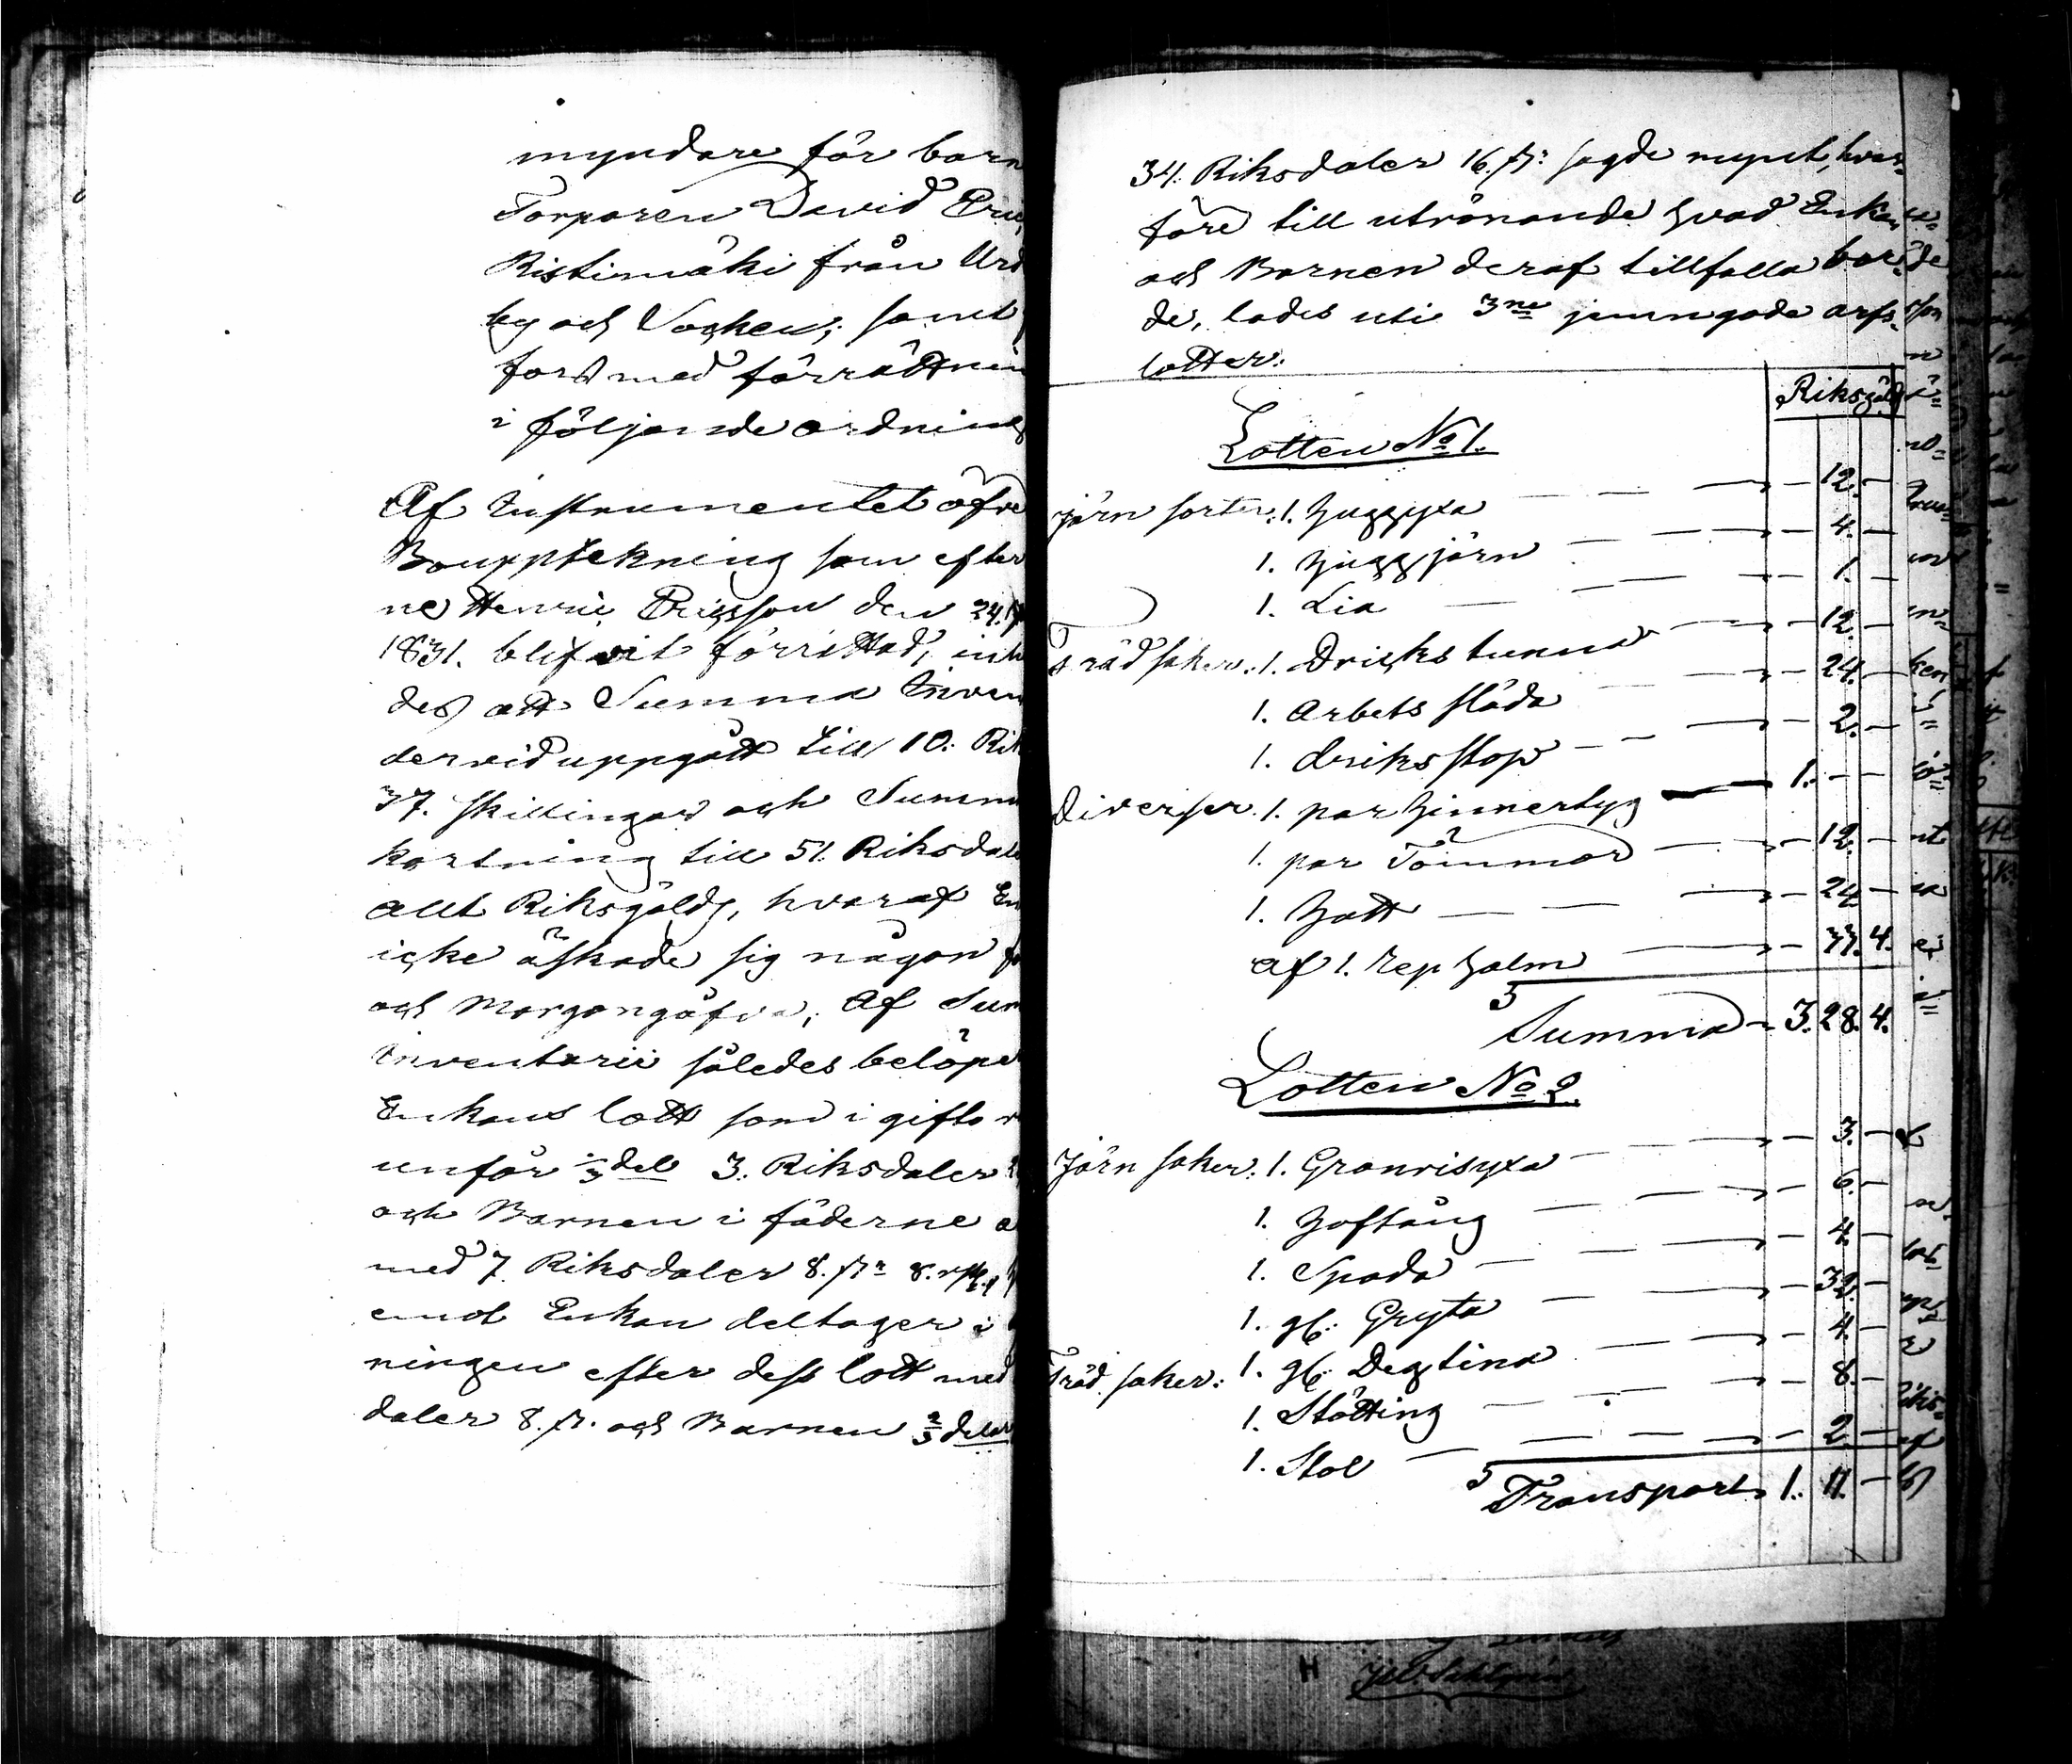 myndare för barn
Torparen David Eric
Ristimäki från Urd
by och Socken; samt
fors med förrättnin
i följande ordning
Af Instrumentet öfve
Bouppteckning som efter
ne Henric Ericsson den 24.
1831. blifvit förrättad, inh
des att Summa Inven
dervid uppgått till 10: Rik
37. skillingar och Summa
kortning till 51. Riksdale
allt Riksgälds, hvaraf En
icke äskade sig någon f
och Morgongåfva; Af Sum
Inventarii således belöper
Enkans lott som i gifto r
unför 1/3 del 3. Riksdaler
och Barnen i fäderne a
med 7. Riksdaler 8. sk 8. rst.
emot Enkan deltager i
ningen efter dess lott med
daler 8. sk. och Barnen 2/3 delar
34: Riksdaler 16. sk: sagde mynt, hvar-
före till utrönande hvad Enkan
och Barnen deraf tillfalla bor-
de, lades uti 3ne jemngoda arfs-
lotter:
Riksgäld
Lotten No 1.
Järn sorter: 1. Huggyxa — 12. —
1. Huggjärn — 4. —
1. Lia — 1. —
Träd saker: 1. Dricks tunna — 12. —
1. Arbets släda — 24. —
1. driks stop — 2. —
Diverser. 1. par Hinnertyg 1. — —
1. par Tömmar — 12. —
1. Hatt — 24 —
af 1. rep halm — 33. 4.
Summa 3. 28. 4.
Lotten No 2.
Järn saker: 1. Granrisyxa — 3. —
1. Hoftång — 6. —
1. Spada — 4. —
1. gl: Gryta — 32. —
Träd saker: 1. gl: Degtina — 4. —
1. Stötting — 8. —
1. Stol — 2. —
Transport 1. 11. —